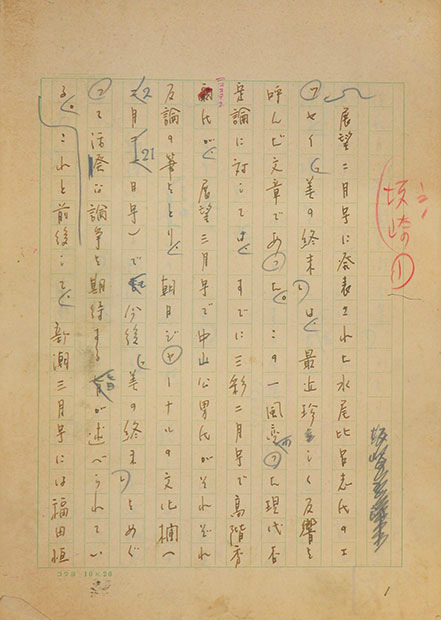 坂崎①
坂崎乙郎
展望二月号に発表された水尾比呂志氏のエ
ッセイ「美の終末」は、最近珍しく反響を
呼んだ文章であった。この一風変った現代否
定論に対しては、すでに三彩二月号で高階秀
爾氏が、展望三月号で中山公男氏がそれぞれ
反論の筆をとり、朝日ジャーナルの文化欄へ
2月21日号)で今後「美の終末」をめぐ
って活潑な論争を期待する旨が述べられてい
る。これと前後して、新潮三月号には福田恒
コクヨ
1